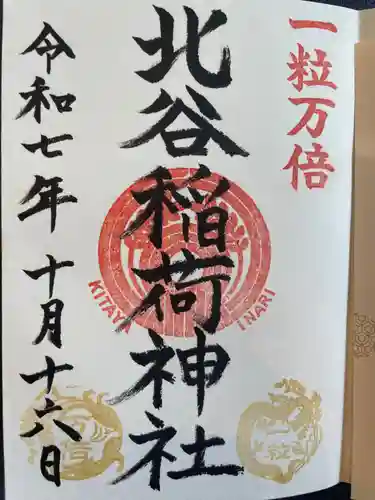 一粒万倍
北谷稲荷神社
KITAYA INARI
令和七年十月十六日